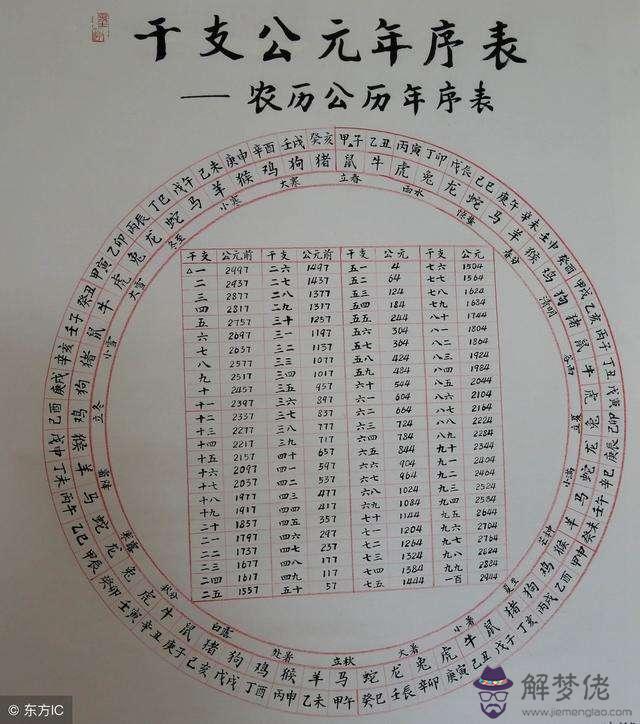 干支公元年序表
——农历公历年序表
甲子 乙丑 丙寅 丁卯 戊辰 己巳 庚午 辛未 壬申 癸酉 甲戌 乙亥 丙子 丁丑 戊寅 己卯 庚辰 辛巳 壬午 癸未 甲申 乙酉 丙戌 丁亥 戊子 己丑 庚寅 辛卯 壬辰 癸巳 甲午 乙未 丙申 丁酉 戊戌 己亥 庚子 辛丑 壬寅 癸卯 甲辰 乙巳 丙午 丁未 戊申 己酉 庚戌 辛亥 壬子 癸丑 甲寅 乙卯 丙辰 丁巳 戊午 己未 庚申 辛酉 壬戌 癸亥
鼠 牛 虎 兔 龙 蛇 马 羊 猴 鸡 狗 猪 鼠 牛 虎 兔 龙 蛇 马 羊 猴 鸡 狗 猪 鼠 牛 虎 兔 龙 蛇 马 羊 猴 鸡 狗 猪 鼠 牛 虎 兔 龙 蛇 马 羊 猴 鸡 狗 猪 鼠 牛 虎 兔 龙 蛇 马 羊 猴 鸡 狗 猪
立春 雨水 惊蛰 春分 清明 谷雨 立夏 小满 芒种 夏至 小暑 大暑 立秋 处暑 白露 秋分 寒露 霜降 立冬 小雪 大雪 冬至 小寒 大寒
干支 公元前 干支 公元前 干支 公元 干支 公元
△一 2997 二六 1497 五一 4 七六 1504
二 2937 二七 1437 五二 64 七七 1564
三 2877 二八 1377 五三 124 七八 1624
四 2817 二九 1317 五四 184 七九 1684
五 2757 三十 1257 五五 244 八十 1744
六 2697 三一 1197 五六 304 八一 1804
七 2637 三二 1137 五七 364 八二 1864
八 2577 三三 1077 五八 424 八三 1924
九 2517 三四 1017 五九 484 八四 1984
十 2457 三五 957 六十 544 八五 2044
十一 2397 三六 897 六一 604 八六 2104
十二 2337 三七 837 六二 664 八七 2164
十三 2277 三八 777 六三 724 八八 2224
十四 2217 三九 717 六四 784 八九 2284
十五 2157 四十 657 六五 844 九十 2344
十六 2097 四一 597 六六 904 九一 2404
十七 2037 四二 537 六七 964 九二 2464
十八 1977 四三 477 六八 1024 九三 2524
十九 1917 四四 417 六九 1084 九四 2584
二十 1857 四五 357 七十 1144 九五 2644
二一 1797 四六 297 七一 1204 九六 2704
二二 1737 四七 237 七二 1264 九七 2764
二三 1677 四八 177 七三 1324 九八 2824
二四 1617 四九 117 七四 1384 九九 2884
二五 1557 五十 57 七五 1444 一百 2944
© 东方IC
解梦佬
www.jiemenglao.com